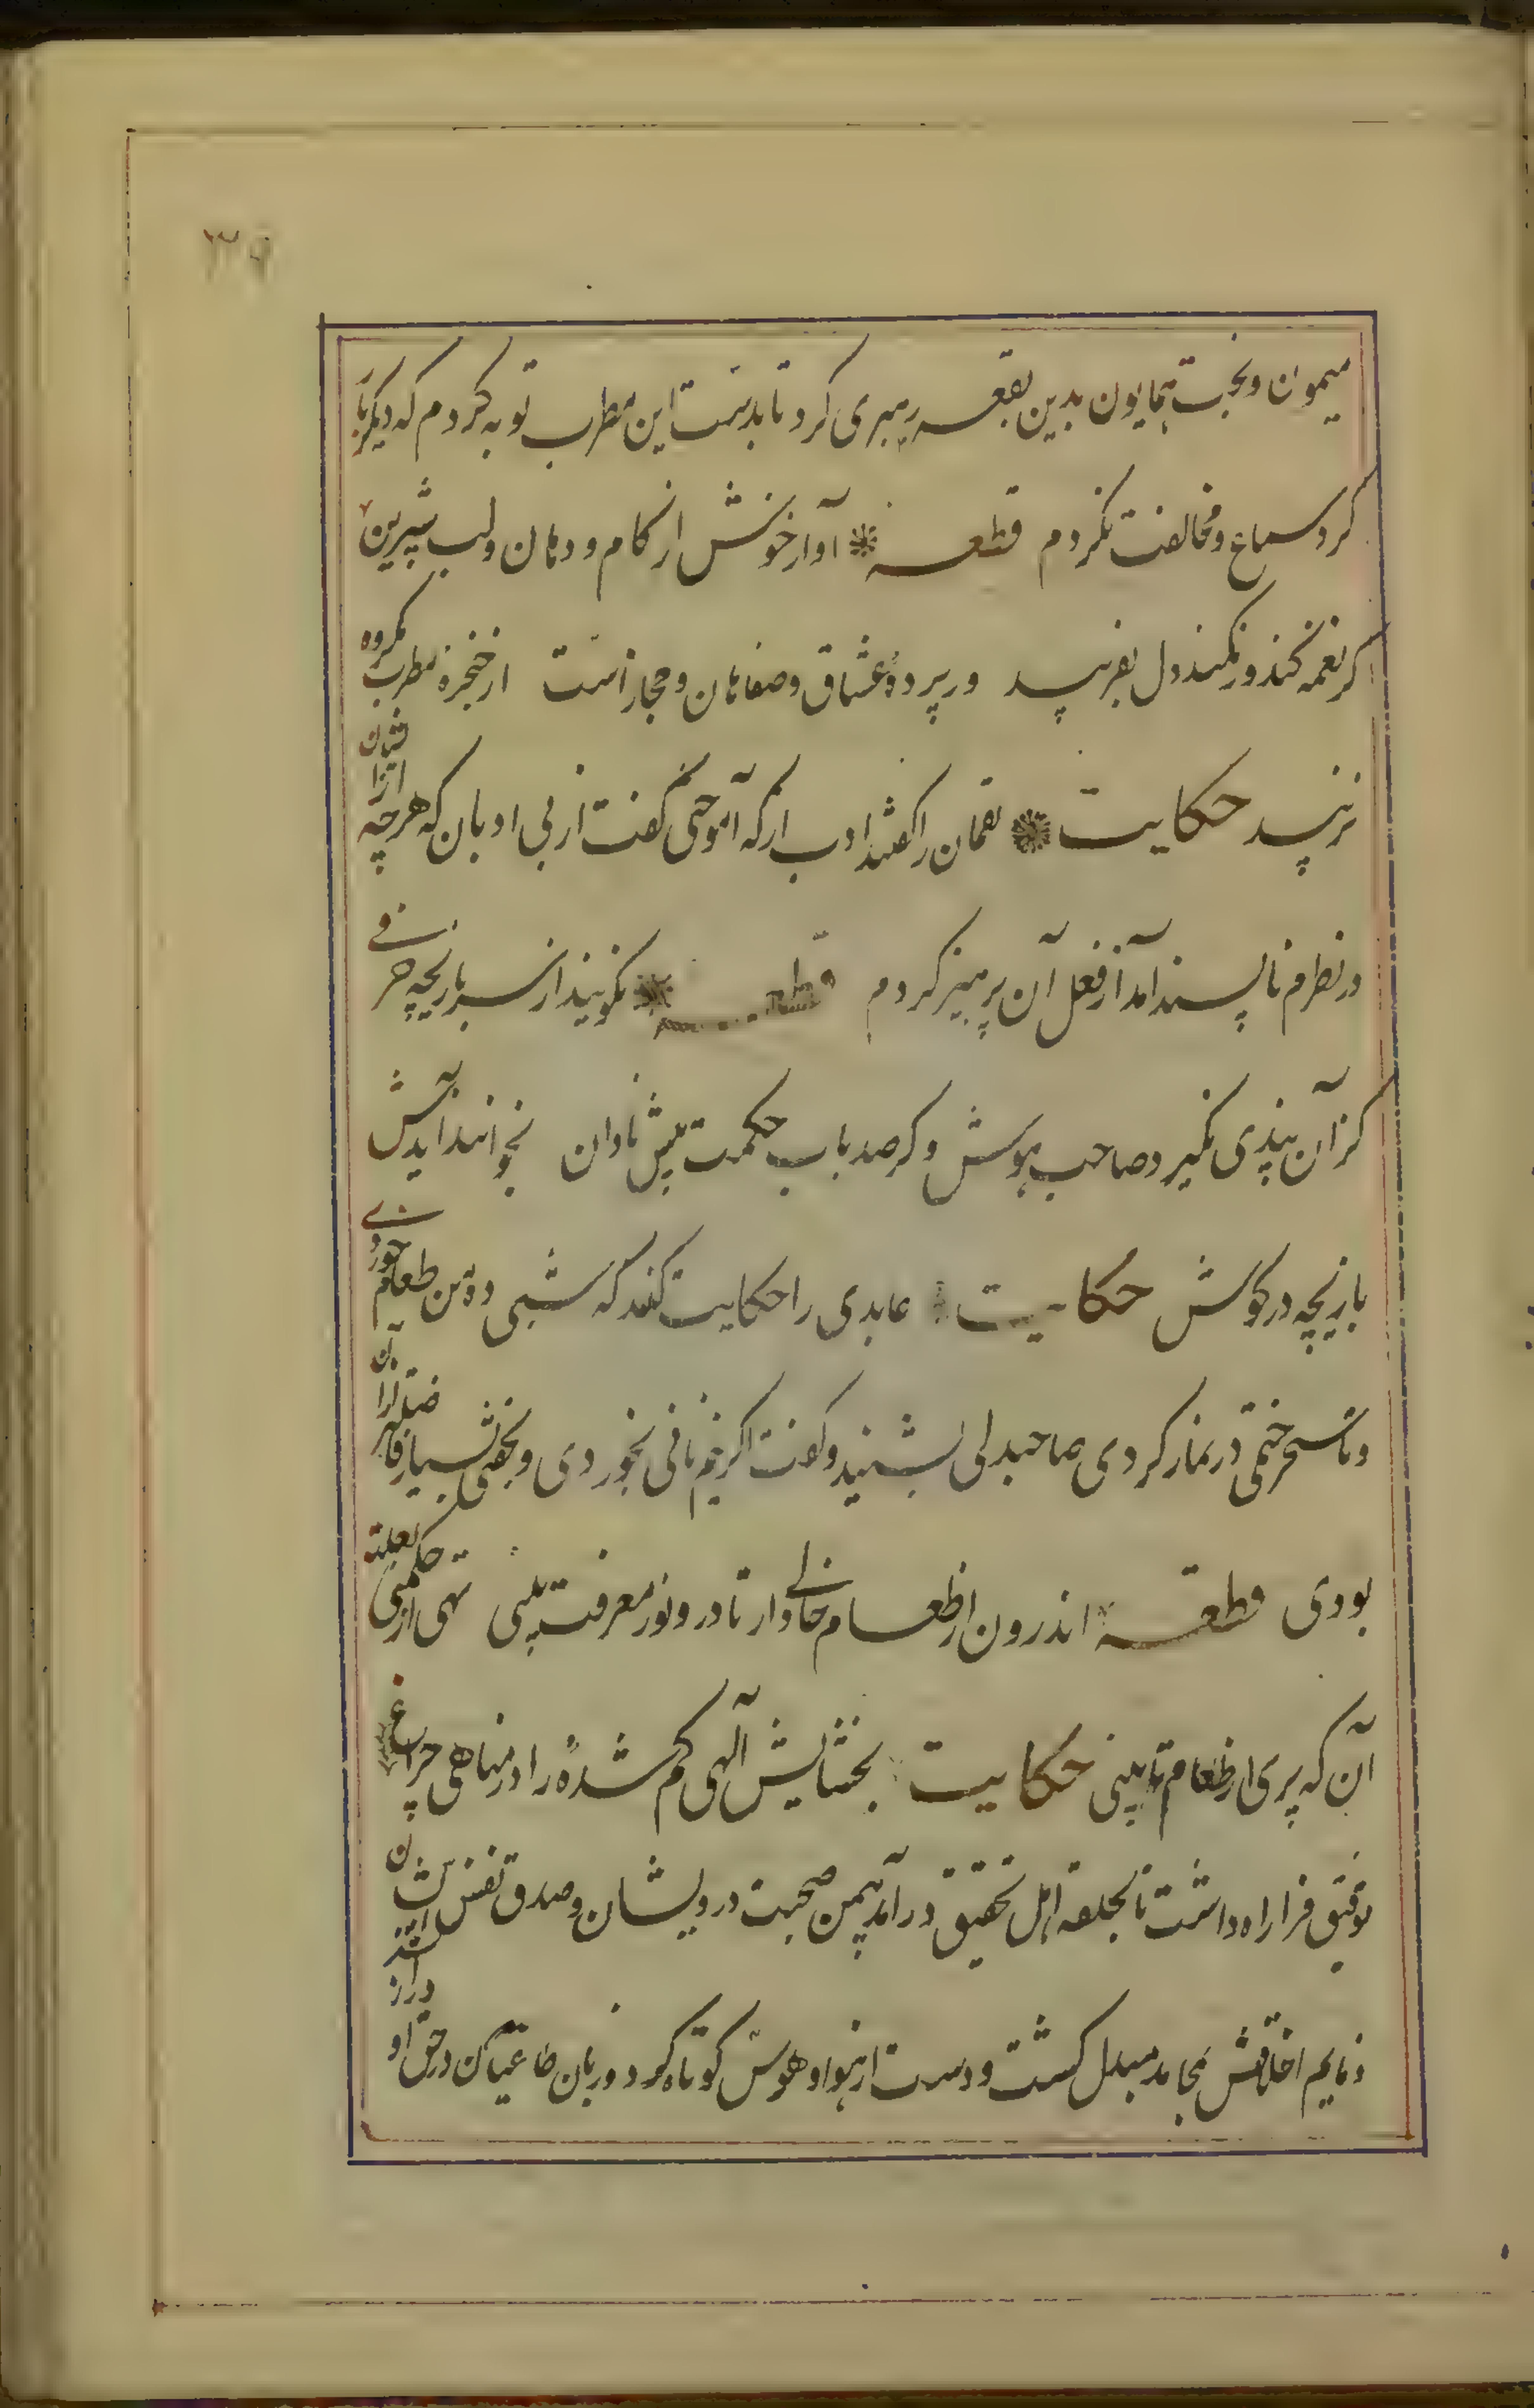 ۳۹
میمون و بخت همایون بدین بقعه رهبری کرد تا بدست این مطرب توبه کردم که دیگر بار
کرد سماع و مخالفت نکردم قطعه آواز خوش از کام و دهان و لب شیرین
کر نغمه کند ور نکند دل بفریبد ور پردهٔ عشاق و صفاهان و حجاز است از خنجرهٔ مطرب مکروه
نزیبد حکایت لقمان را کفتند ادب از که آموختی کفت از بی ادبان که هرچه ازایشان
در نظرم ناپسند آمد از فعل آن پرهیز کردم قطعه نکویند از سر بازیچه حرفی
کزان پندی نکیرد صاحب هوش و کر صد باب حکمت پیش نادان بخوانند آیدش
بازیچه در کوش حکایت عابدی را حکایت کنند که شبی ده من طعام خوردی
و تا سحر ختمی در نماز کردی صاحبدلی بشنید و کفت اکر نیم نانی بخوردی و بخفتی بسیار فاضلتر ازان
بودی قطعه اندرون از طعام خالی دار تا درو نور معرفت بینی تهی از حکمتی بعلت
آن که پری از طعام تا بینی حکایت بخشایش آلهی کم شدهٔ را در مناهی چراغ
توفیق فرا راه داشت تا بحلقه اهل تحقیق درآمد بیمن صحبت درویشان و صدق نفس ایشان
ذمایم اخلاقش بمحامد مبدل کشت و دست از هوا و هوس کوتاه کرد و زبان طاعنان در حق او دراز